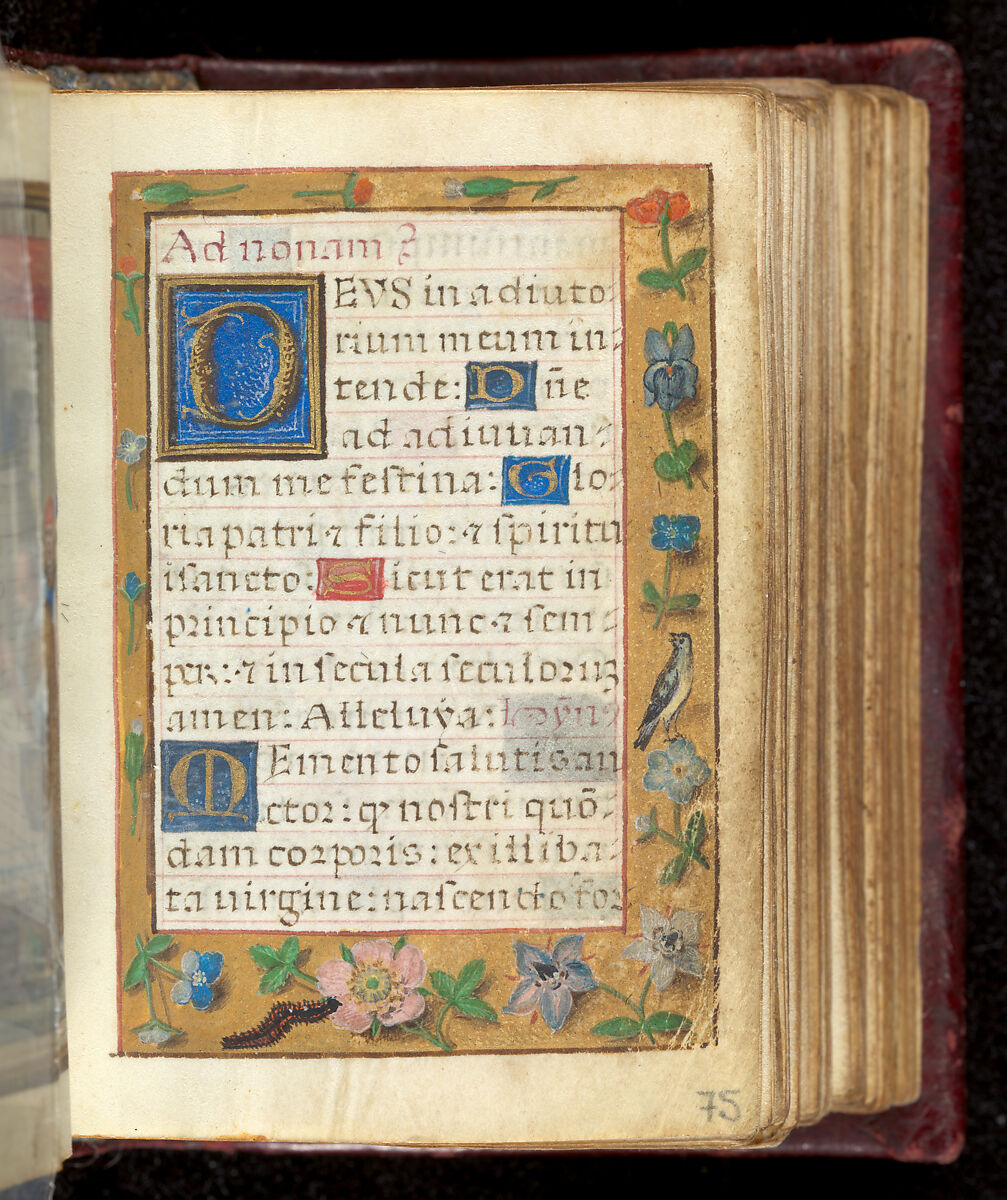 Ad nonam
DEVS in adiuto
rium meum in
tende: Dñe
ad adiuuan
dum me festina: Glo
ria patri ⁊ filio: ⁊ spiritu
i sancto: Sicut erat in
principio ⁊ nunc ⁊ sem
per: ⁊ in secula seculorum
amen: Alleluÿa: hÿn
MEmento salutis au
ctor: qꝫ nostri quõ
dam corporis: ex illiba
ta uirgine: nascendo for
75